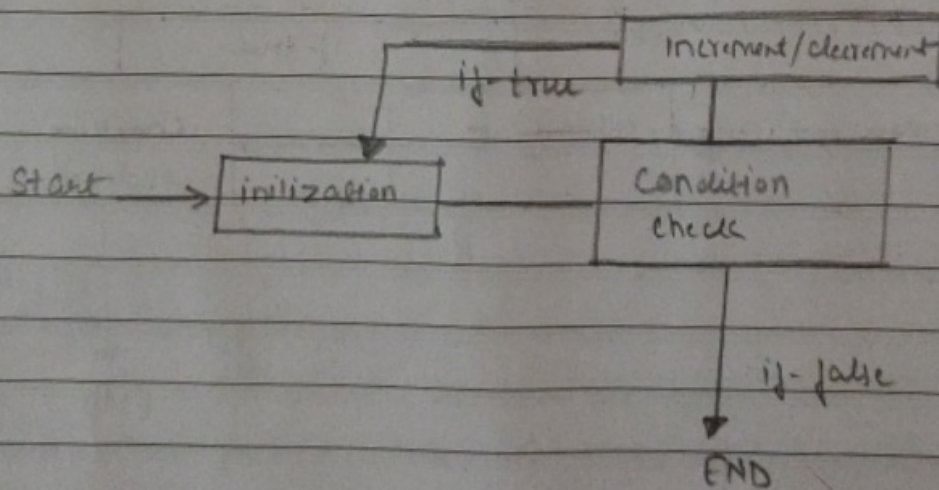 Increment/decrement
if-true
Start
inilization
Condition
check
if-false
END